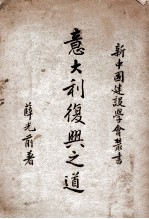 新中國建設學會叢書
意大利復興之道
薛光前著